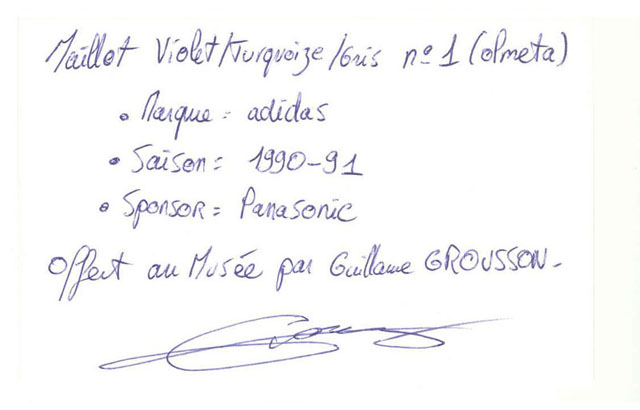 Maillot Violet/Turquoize/Gris nº 1 (Olmeta)
• Marque = adidas
• Saison = 1990-91
• Sponsor = Panasonic
Offert au Musée par Guillaume GROUSSON.